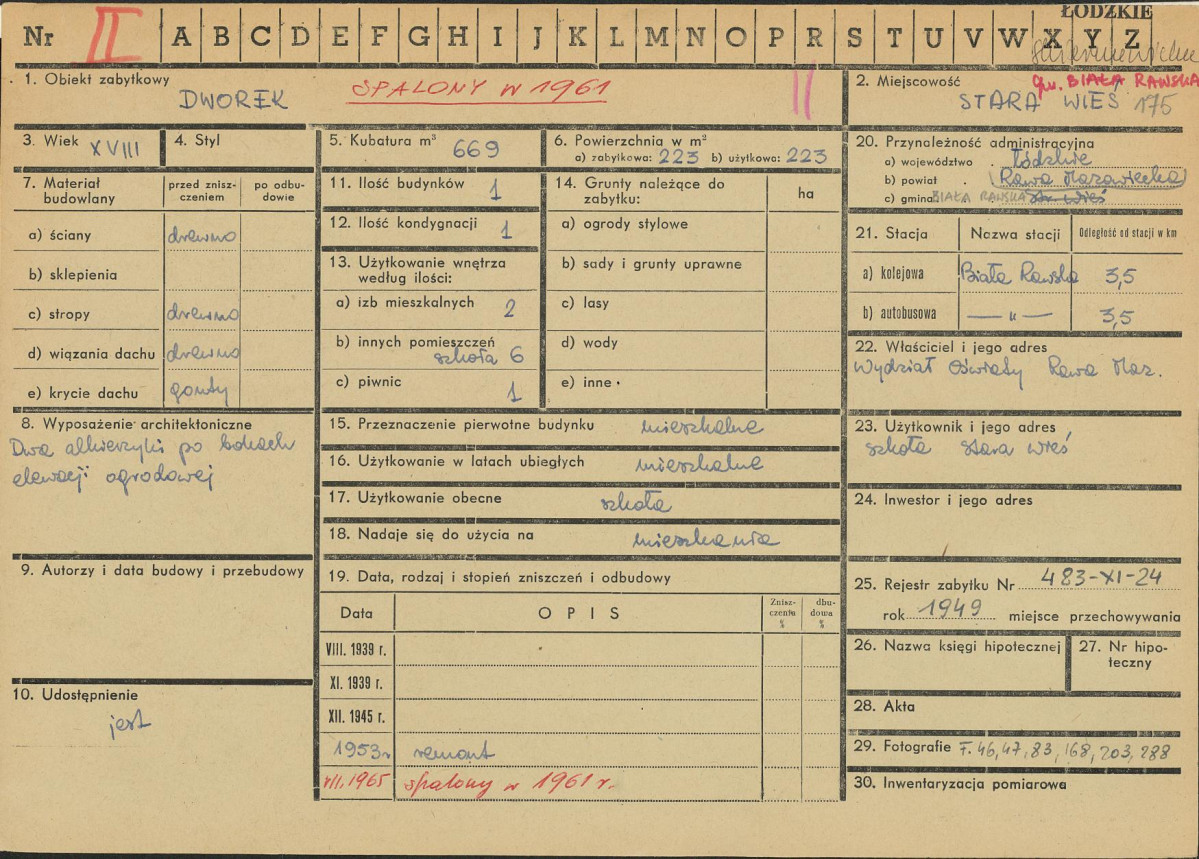 ŁÓDZKIE
Nr II A B C D E F G H I J K L M N O P R S T U V W X Y Z
1. Obiekt zabytkowy
DWOREK
SPALONY W 1961
II
2. Miejscowość
gm. BIAŁA RAWSKA
STARA WIEŚ 175
3. Wiek XVIII
4. Styl
5. Kubatura m³ 669
6. Powierzchnia w m²
a) zabytkowa: 223 b) użytkowa: 223
7. Materiał budowlany
przed zniszczeniem
po odbudowie
a) ściany drewno
b) sklepienia
c) stropy drewno
d) wiązania dachu drewno
e) krycie dachu gonty
8. Wyposażenie architektoniczne
Dwa alkierzyki po bokach
elewacji ogrodowej
9. Autorzy i data budowy i przebudowy
10. Udostępnienie
jest
11. Ilość budynków 1
12. Ilość kondygnacji 1
13. Użytkowanie wnętrza
według ilości:
a) izb mieszkalnych 2
b) innych pomieszczeń
szkoła 6
c) piwnic 1
14. Grunty należące do
zabytku:
ha
a) ogrody stylowe
b) sady i grunty uprawne
c) lasy
d) wody
e) inne
15. Przeznaczenie pierwotne budynku mieszkalne
16. Użytkowanie w latach ubiegłych mieszkalne
17. Użytkowanie obecne szkoła
18. Nadaje się do użycia na mieszkania
19. Data, rodzaj i stopień zniszczeń i odbudowy
Data OPIS Zniszczenia % dbudowa %
VIII. 1939 r.
XI. 1939 r.
XII. 1945 r.
1953 r remont
VII. 1965 spalony w 1961 r.
20. Przynależność administracyjna
a) województwo Łódzkie
b) powiat Rawa Mazowiecka
c) gmina BIAŁA RAWSKA St. Wieś
21. Stacja Nazwa stacji Odległość od stacji w km
a) kolejowa Biała Rawska 3,5
b) autobusowa — „ — 3,5
22. Właściciel i jego adres
Wydział Oświaty Rawa Maz.
23. Użytkownik i jego adres
szkoła Stara Wieś
24. Inwestor i jego adres
25. Rejestr zabytku Nr 483-XI-24
rok 1949 miejsce przechowywania
26. Nazwa księgi hipotecznej
27. Nr hipoteczny
28. Akta
29. Fotografie F. 46, 47, 83, 168, 203, 288
30. Inwentaryzacja pomiarowa